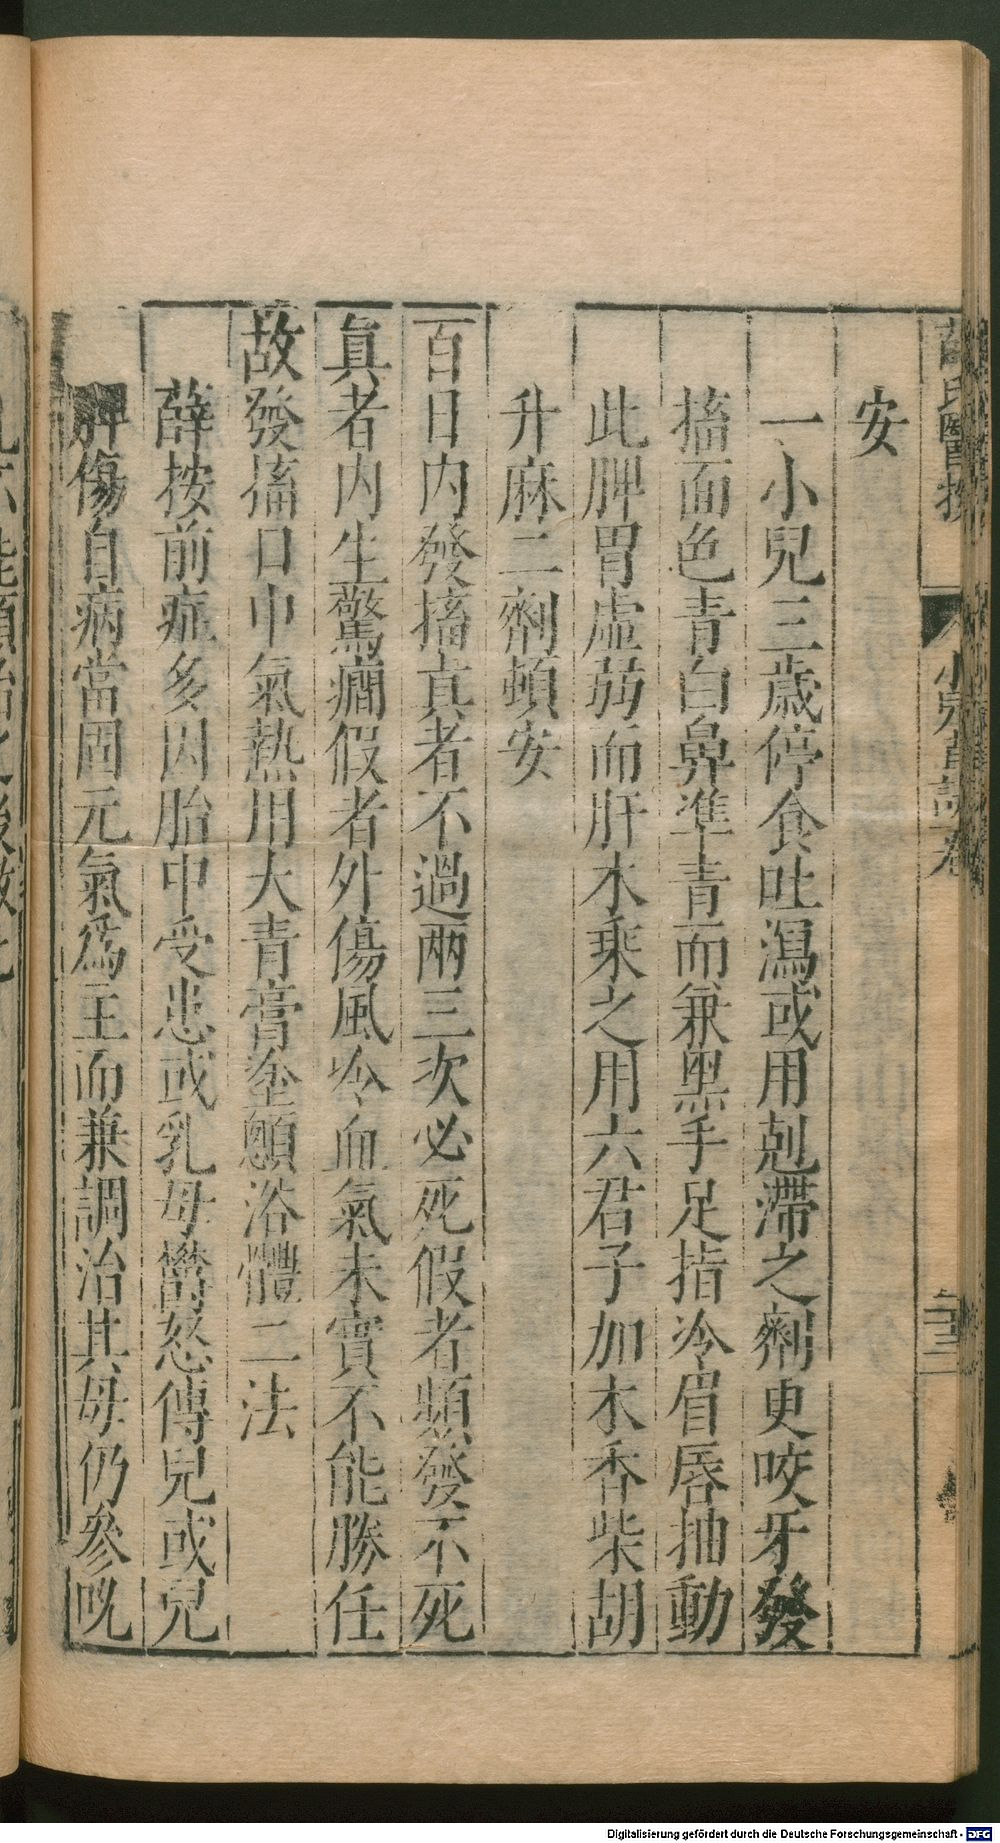 薛氏醫按 小兒直訣卷
安
一小兒三歲停食吐瀉或用剋滯之劑更咬牙發
搐面色青白鼻準青而兼黑手足指冷眉唇抽動
此脾胃虛弱而肝木乘之用六君子加木香柴胡
升麻二劑頓安
百日内發搐真者不過兩三次必死假者頻發不死
真者内生驚癇假者外傷風冷血氣未實不能勝任
故發搐口中氣熱用大青膏塗顖浴體二法
薛按前症多因胎中受患或乳母鬱怒傳兒或兒
脾傷自病當固元氣爲主而兼調治其母仍參晛
Digitalisierung gefördert durch die Deutsche Forschungsgemeinschaft - DFG